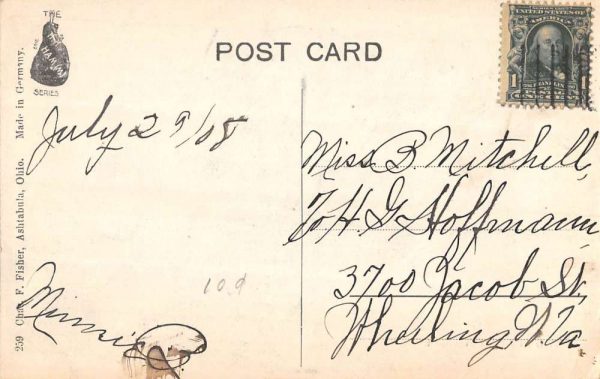 THE
HANNA
SERIES
POST CARD
SERIES 1902
UNITED STATES OF
AMERICA
1 1
FRANKLIN
ONE CENT
July 29/08
Miss B. Mitchell,
To H. G. Hoffmann
3700 Jacob St,
Wheeling W.Va
109
Minnie
259 Chas. F. Fisher, Ashtabula, Ohio. Made in Germany.